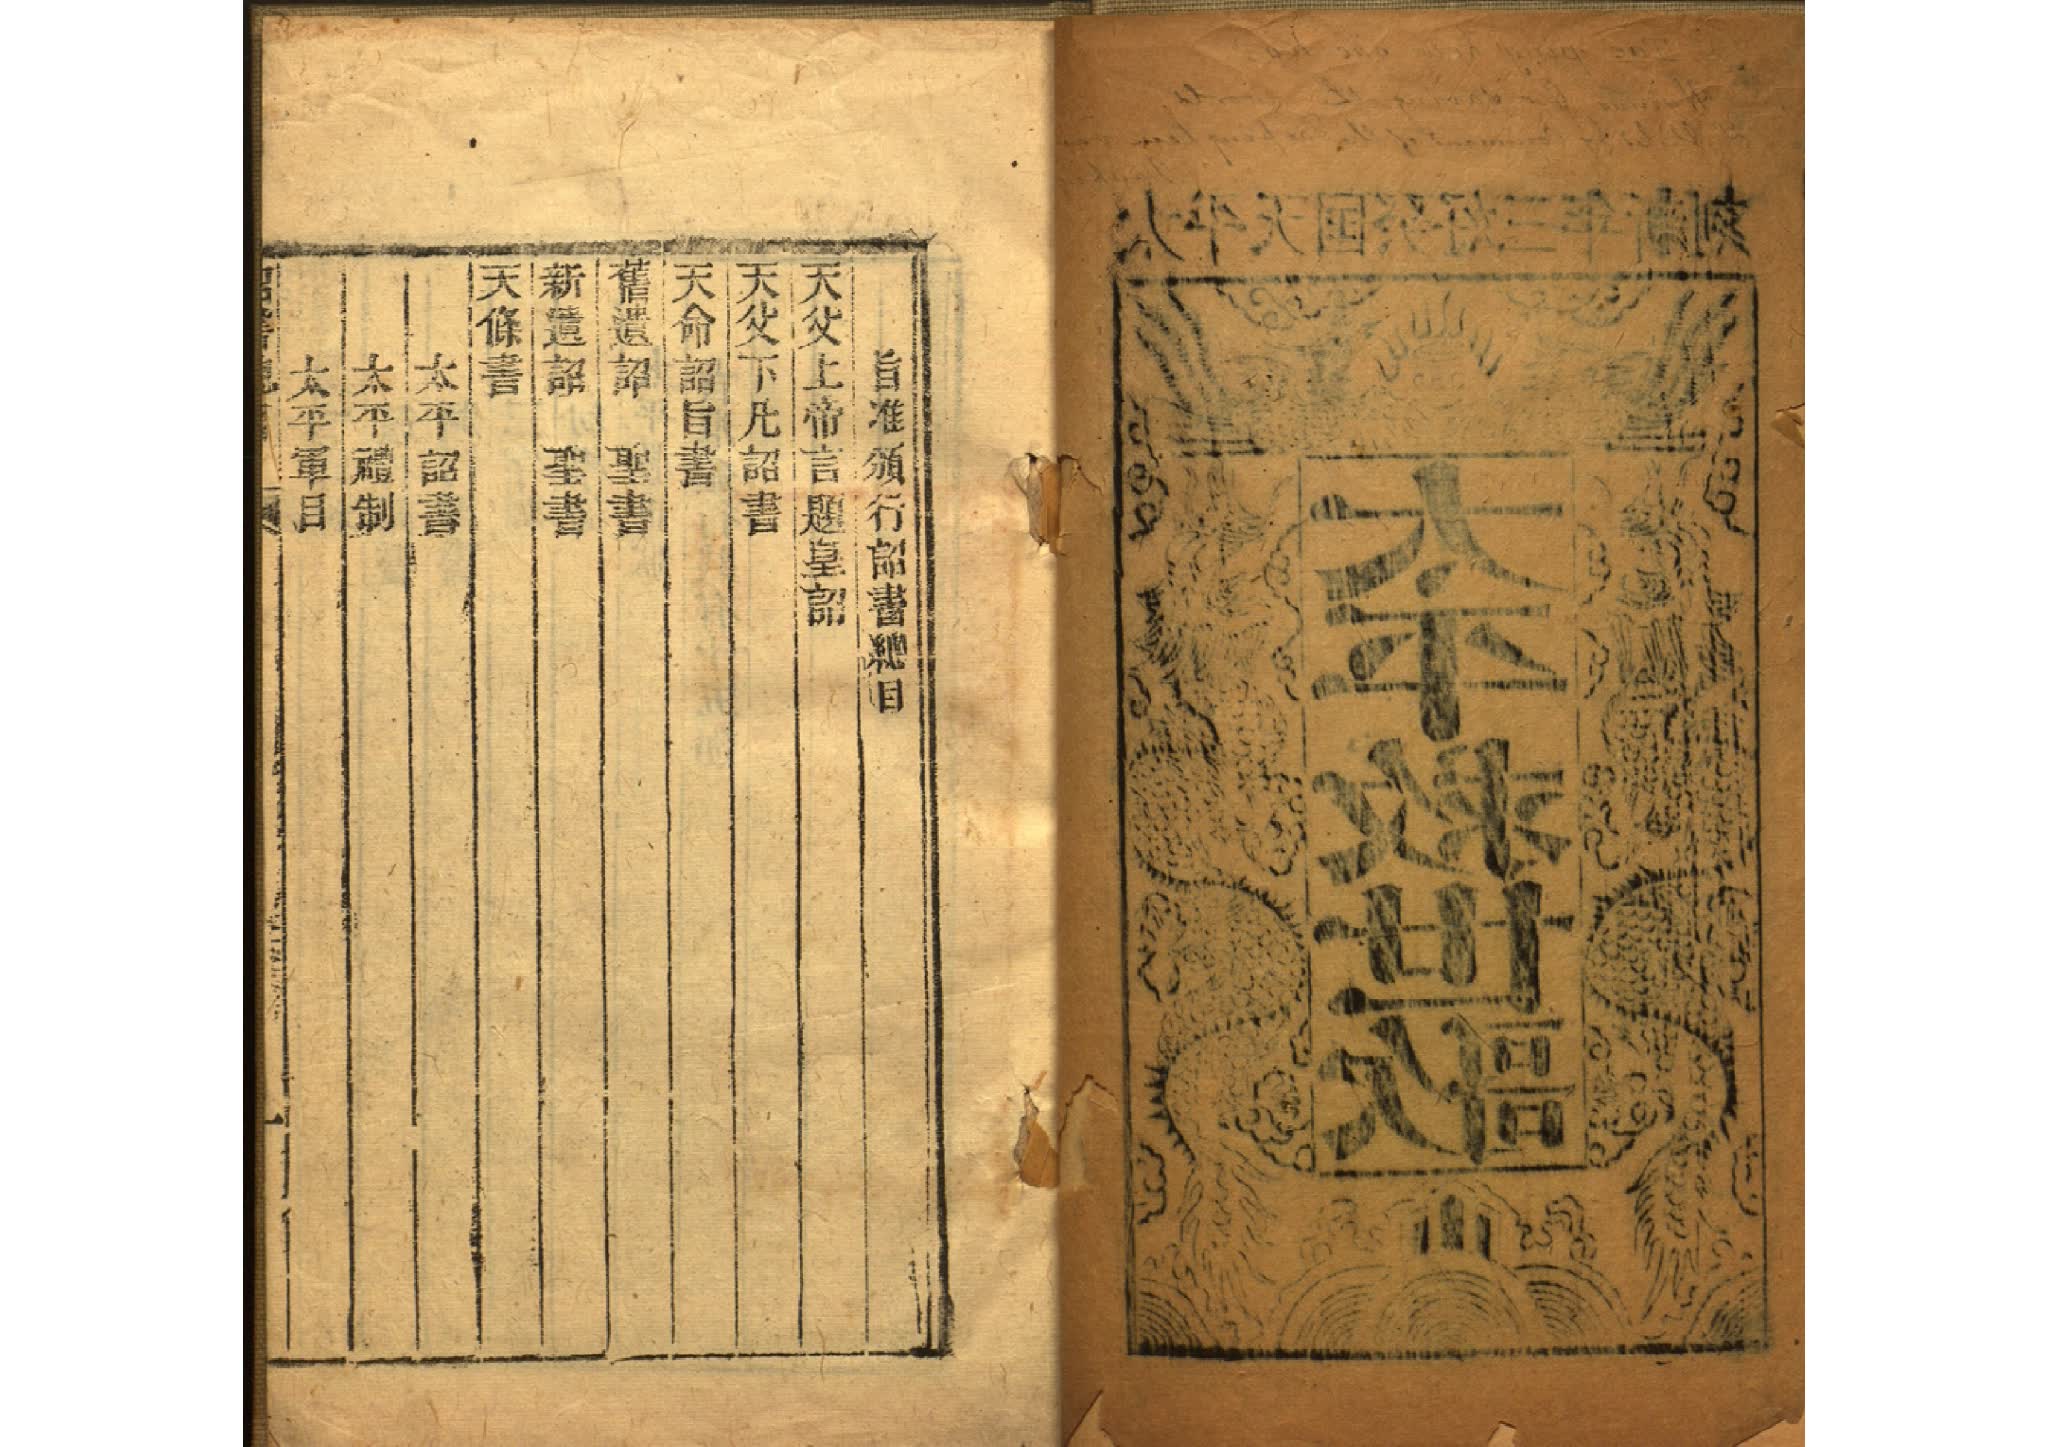 太平天国癸好三年新刻
太平救世歌
旨准頒行詔書總目
天父上帝言題皇詔
天父下凡詔書
天命詔旨書
舊遺詔 聖書
新遺詔 聖書
天條書
太平詔書
太平禮制
太平軍目